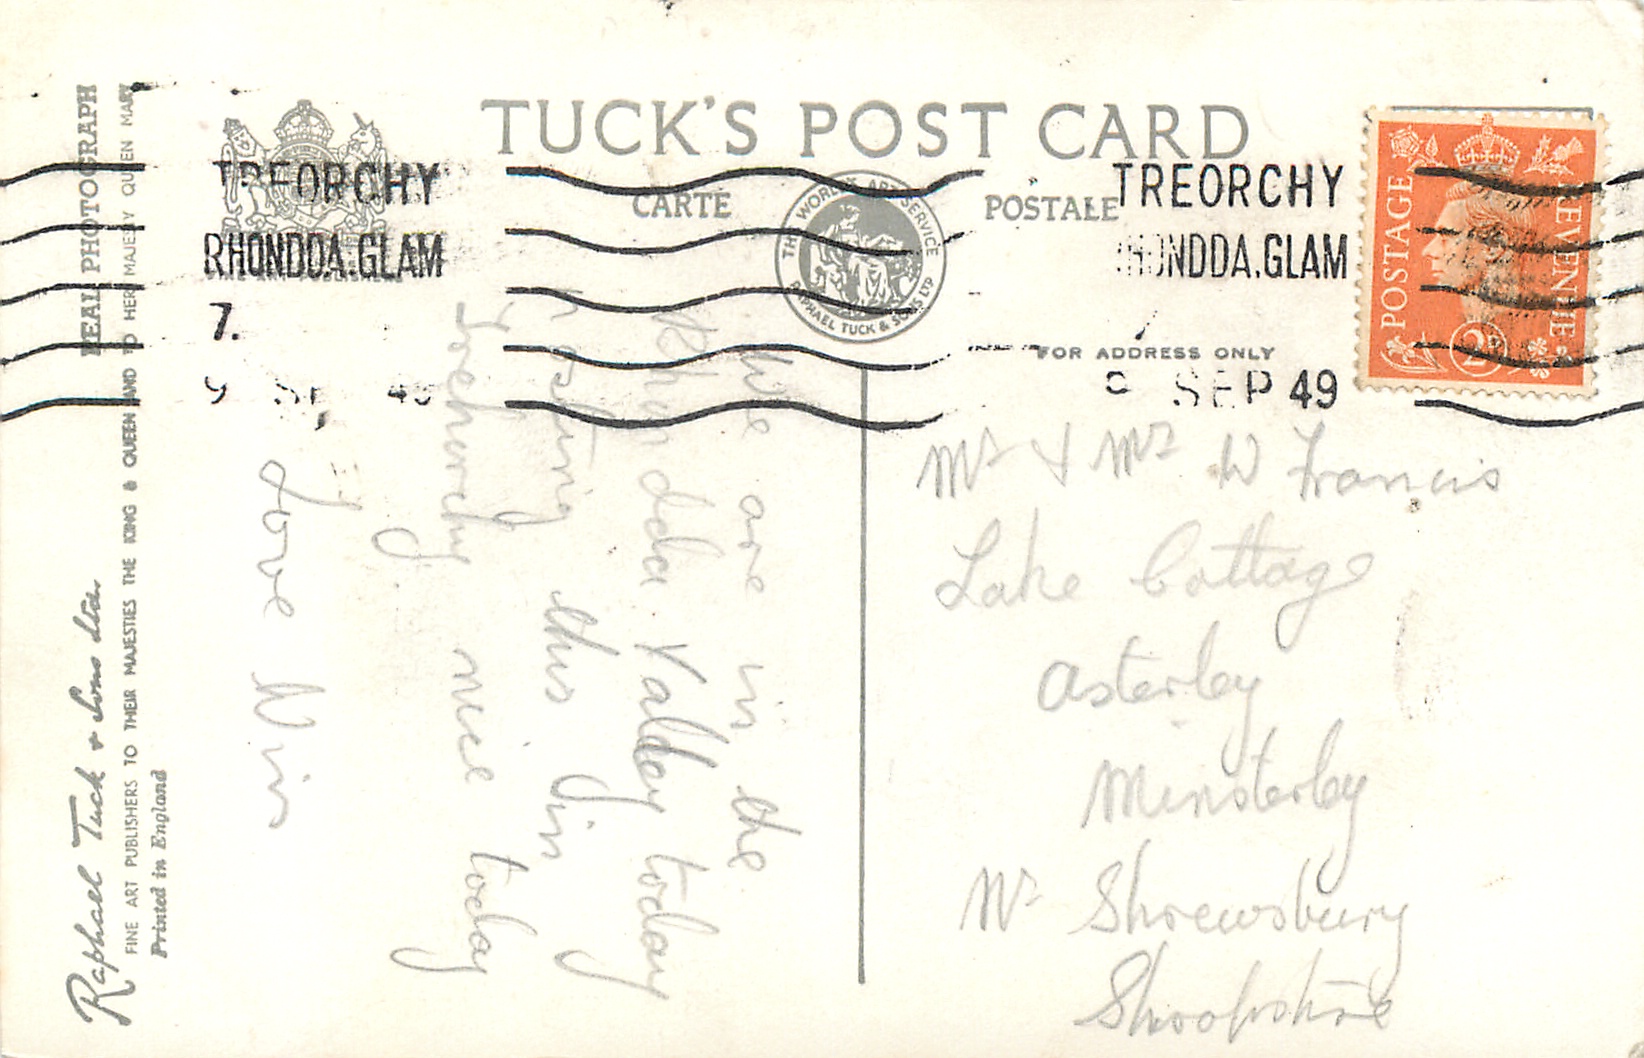 TUCK'S POST CARD
CARTE POSTALE
THE WORLD'S ART SERVICE
RAPHAEL TUCK & SONS LTD
FINE ART PUBLISHERS
FOR ADDRESS ONLY
TREORCHY
RHONDDA.GLAM
7.
9 SEP 49
TREORCHY
HONDDA.GLAM
SEP 49
POSTAGE
REVENUE
2D
REAL PHOTOGRAPH
Raphael Tuck & Sons Ltd.
FINE ART PUBLISHERS TO THEIR MAJESTIES THE KING & QUEEN AND TO HER MAJESTY QUEEN MARY
Printed in England
We are in the
Rhondda Valley today
posting this in
Treherchy nice today
Love Win
Mr & Mrs W Francis
Lake Cottage
Asterley
Minsterley
Nr Shrewsbury
Shropshire